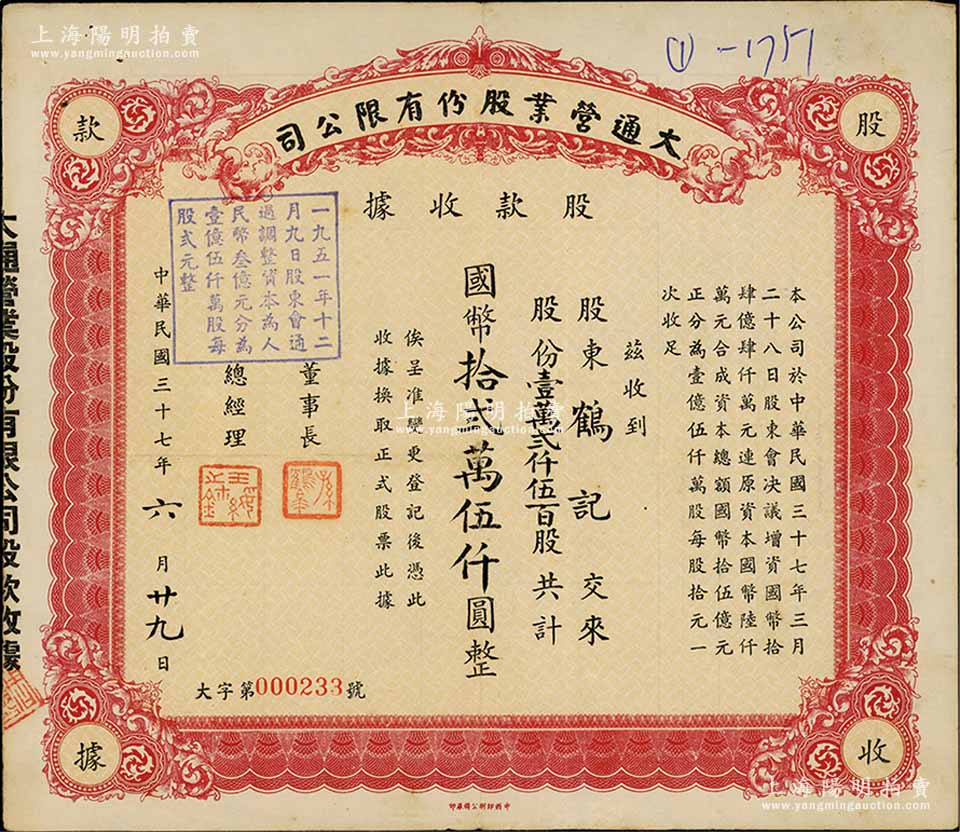 上海陽明拍賣
www.yangmingauction.com
① -1751
大通營業股份有限公司
股
款
收
據
股款收據
本公司於中華民國三十七年三月
二十八日股東會決議增資國幣拾
肆億肆仟萬元連原資本國幣陸仟
萬元合成資本總額國幣拾伍億元
正分為壹億伍仟萬股每股拾元一
次收足
茲收到
股東鶴記交來
股份壹萬弍仟伍百股共計
國幣拾弍萬伍仟圓整
俟呈准變更登記後憑此
收據換取正式股票此據
董事長
總經理
一九五一年十二
月九日股東會通
過調整資本為人
民幣叁億元分為
壹億伍仟萬股每
股弍元整
中華民國三十七年六月廿九日
大字第000233號
大通營業股份有限公司股款收據
上海陽明拍賣
www.yangmingauction.com
上海陽明拍賣
www.yangmingauction.com